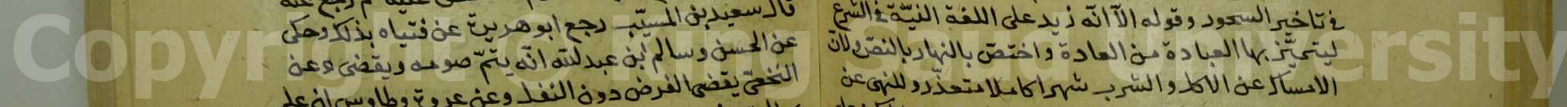 في تاخير السحور وقوله الا انه زيد على اللغة النيّة في الشرع
ليتميّز بها العبادة من العادة واختصّ بالنهار بالنص ولان
الامساك عن الاكل والشرب شهرا كاملا متعذّر وللنهى عن
قال سعيد بن المسيّب رجع ابو هريرة عن فتياه بذلك وحكى
عن الحسن وسالم ابن عبد لله انّه يتمّ صومه ويقضى وعن
النخعىّ يقضى الفرض دون النفل وعن عروة وطاوس ان علم
Copyright University